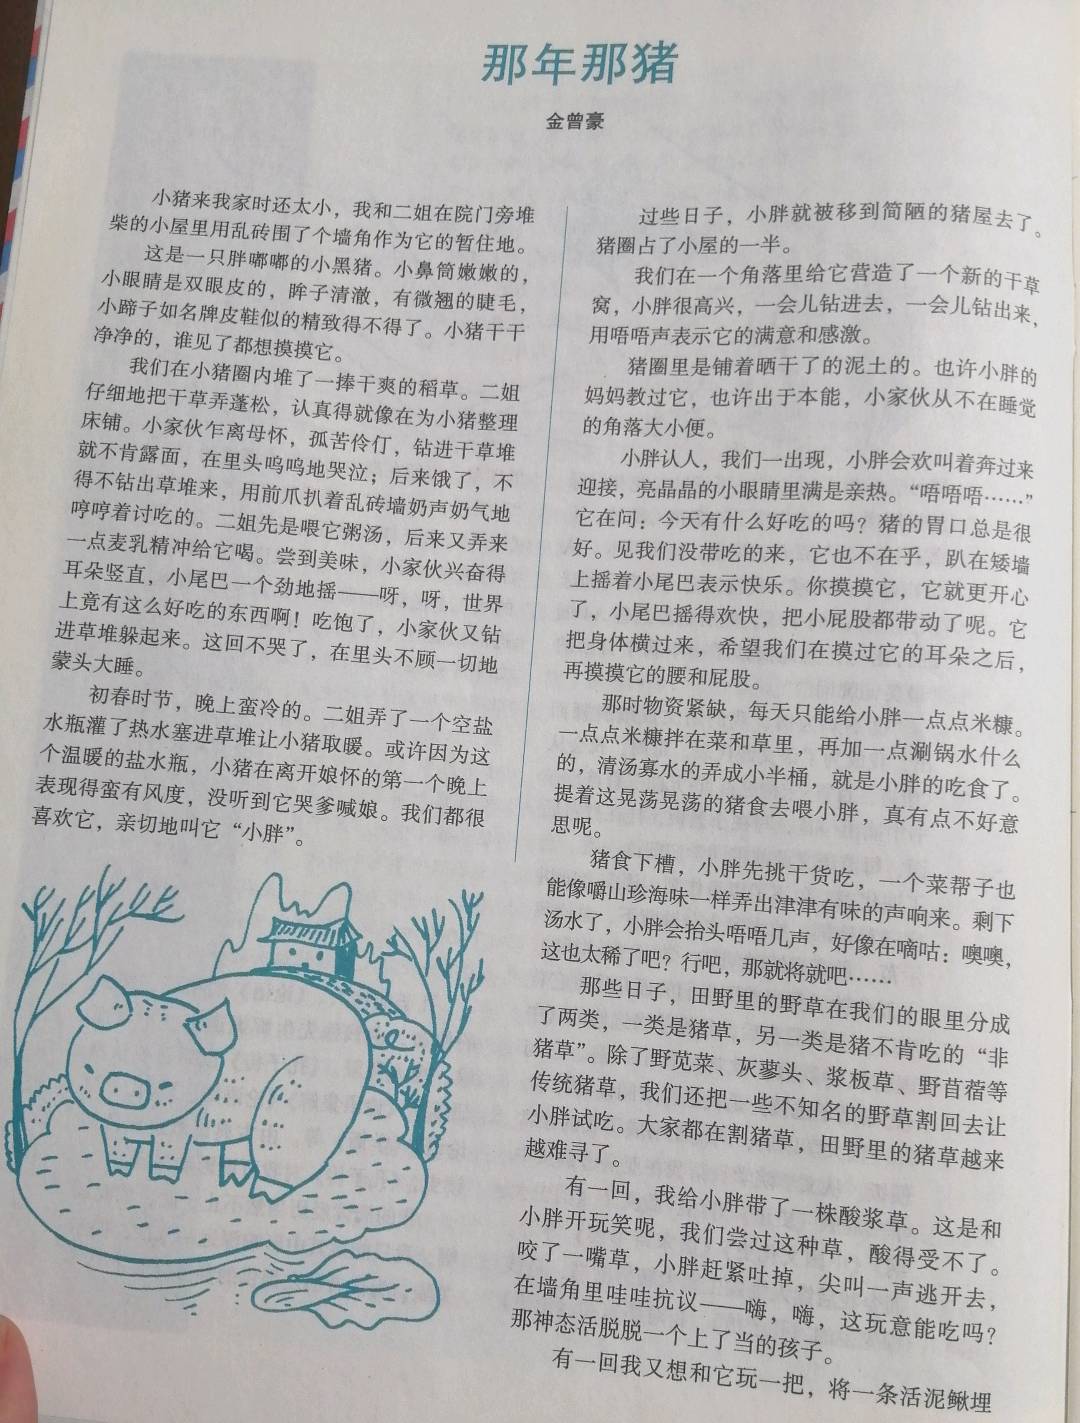 那年那猪
金曾豪
小猪来我家时还太小，我和二姐在院门旁堆
柴的小屋里用乱砖围了个墙角作为它的暂住地。
这是一只胖嘟嘟的小黑猪。小鼻筒嫩嫩的，
小眼睛是双眼皮的，眸子清澈，有微翘的睫毛，
小蹄子如名牌皮鞋似的精致得不得了。小猪干干
净净的，谁见了都想摸摸它。
我们在小猪圈内堆了一捧干爽的稻草。二姐
仔细地把干草弄蓬松，认真得就像在为小猪整理
床铺。小家伙乍离母怀，孤苦伶仃，钻进干草堆
就不肯露面，在里头呜呜地哭泣；后来饿了，不
得不钻出草堆来，用前爪扒着乱砖墙奶声奶气地
哼哼着讨吃的。二姐先是喂它粥汤，后来又弄来
一点麦乳精冲给它喝。尝到美味，小家伙兴奋得
耳朵竖直，小尾巴一个劲地摇——呀，呀，世界
上竟有这么好吃的东西啊！吃饱了，小家伙又钻
进草堆躲起来。这回不哭了，在里头不顾一切地
蒙头大睡。
初春时节，晚上蛮冷的。二姐弄了一个空盐
水瓶灌了热水塞进草堆让小猪取暖。或许因为这
个温暖的盐水瓶，小猪在离开娘怀的第一个晚上
表现得蛮有风度，没听到它哭爹喊娘。我们都很
喜欢它，亲切地叫它“小胖”。
过些日子，小胖就被移到简陋的猪屋去了。
猪圈占了小屋的一半。
我们在一个角落里给它营造了一个新的干草
窝，小胖很高兴，一会儿钻进去，一会儿钻出来，
用唔唔声表示它的满意和感激。
猪圈里是铺着晒干了的泥土的。也许小胖的
妈妈教过它，也许出于本能，小家伙从不在睡觉
的角落大小便。
小胖认人，我们一出现，小胖会欢叫着奔过来
迎接，亮晶晶的小眼睛里满是亲热。“唔唔唔……”
它在问：今天有什么好吃的吗？猪的胃口总是很
好。见我们没带吃的来，它也不在乎，趴在矮墙
上摇着小尾巴表示快乐。你摸摸它，它就更开心
了，小尾巴摇得欢快，把小屁股都带动了呢。它
把身体横过来，希望我们在摸过它的耳朵之后，
再摸摸它的腰和屁股。
那时物资紧缺，每天只能给小胖一点点米糠。
一点点米糠拌在菜和草里，再加一点涮锅水什么
的，清汤寡水的弄成小半桶，就是小胖的吃食了。
提着这晃荡晃荡的猪食去喂小胖，真有点不好意
思呢。
猪食下槽，小胖先挑干货吃，一个菜帮子也
能像嚼山珍海味一样弄出津津有味的声响来。剩下
汤水了，小胖会抬头唔唔几声，好像在嘀咕：噢噢，
这也太稀了吧？行吧，那就将就吧……
那些日子，田野里的野草在我们的眼里分成
了两类，一类是猪草，另一类是猪不肯吃的“非
猪草”。除了野苋菜、灰蓼头、浆板草、野苜蓿等
传统猪草，我们还把一些不知名的野草割回去让
小胖试吃。大家都在割猪草，田野里的猪草越来
越难寻了。
有一回，我给小胖带了一株酸浆草。这是和
小胖开玩笑呢，我们尝过这种草，酸得受不了。
咬了一嘴草，小胖赶紧吐掉，尖叫一声逃开去，
在墙角里哇哇抗议——嗨，嗨，这玩意能吃吗？
那神态活脱脱一个上了当的孩子。
有一回我又想和它玩一把，将一条活泥鳅埋